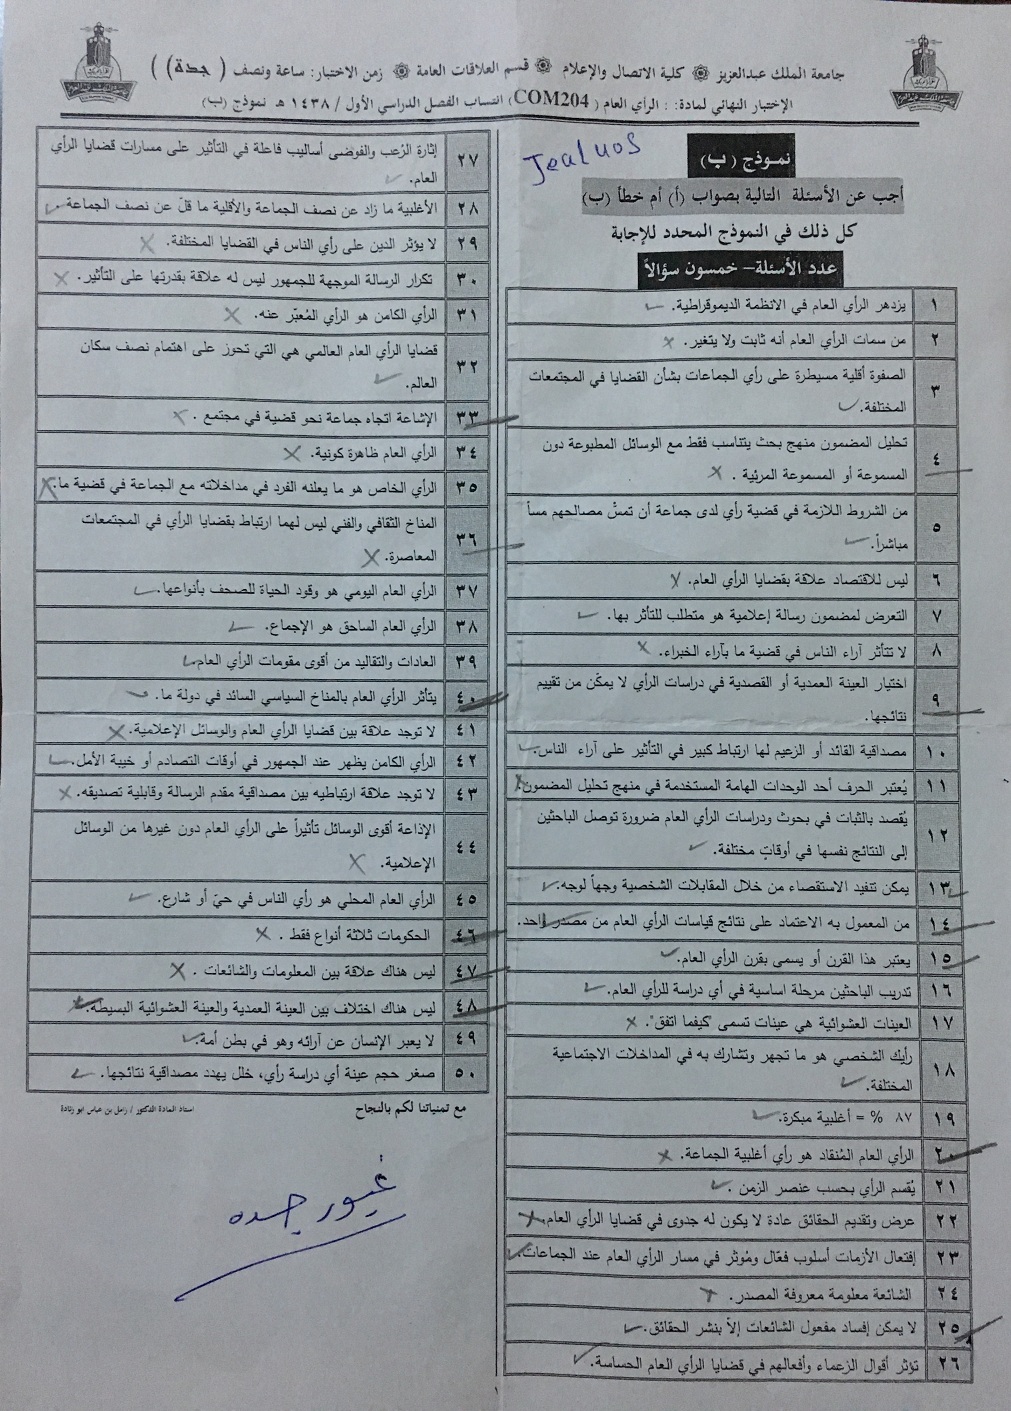 جامعة الملك عبدالعزيز ۞ كلية الاتصال والإعلام ۞ قسم العلاقات العامة ۞ زمن الاختبار: ساعة ونصف ( جدة) )
الإختبار النهائي لمادة: : الرأي العام ( COM204) انتساب الفصل الدراسي الأول / ١٤٣٨ هـ نموذج (ب)
Jealuos
نموذج ( ب )
أجب عن الأسئلة التالية بصواب (أ) أم خطأ (ب)
كل ذلك في النموذج المحدد للإجابة
عدد الأسئلة- خمسون سؤالاً
١ يزدهر الرأي العام في الانظمة الديموقراطية.
٢ من سمات الرأي العام أنه ثابت ولا يتغير.
٣ الصفوة أقلية مسيطرة على رأي الجماعات بشأن القضايا في المجتمعات
المختلفة.
٤ تحليل المضمون منهج بحث يتناسب فقط مع الوسائل المطبوعة دون
المسموعة أو المسموعة المرئية .
٥ من الشروط اللازمة في قضية رأي لدى جماعة أن تمسّ مصالحهم مساً
مباشراً.
٦ ليس للاقتصاد علاقة بقضايا الرأي العام.
٧ التعرض لمضمون رسالة إعلامية هو متطلب للتأثر بها.
٨ لا تتأثر آراء الناس في قضية ما بآراء الخبراء.
٩ اختيار العينة العمدية أو القصدية في دراسات الرأي لا يمكّن من تقييم
نتائجها.
١٠ مصداقية القائد أو الزعيم لها ارتباط كبير في التأثير على آراء الناس.
١١ يُعتبر الحرف أحد الوحدات الهامة المستخدمة في منهج تحليل المضمون
١٢ يُقصد بالثبات في بحوث ودراسات الرأي العام ضرورة توصل الباحثين
إلى النتائج نفسها في أوقاتٍ مختلفة.
١٣ يمكن تنفيد الاستقصاء من خلال المقابلات الشخصية وجهاً لوجه.
١٤ من المعمول به الاعتماد على نتائج قياسات الرأي العام من مصدر واحد.
١٥ يعتبر هذا القرن أو يسمى بقرن الرأي العام.
١٦ تدريب الباحثين مرحلة اساسية في أي دراسة للرأي العام.
١٧ العينات العشوائية هي عينات تسمى "كيفما اتفق".
١٨ رأيك الشخصي هو ما تجهر وتشارك به في المداخلات الاجتماعية
المختلفة.
١٩ ٨٧ % = أغلبية مبكرة.
٢٠ الرأي العام المُنقاد هو رأي أغلبية الجماعة.
٢١ يُقسم الرأي بحسب عنصر الزمن .
٢٢ عرض وتقديم الحقائق عادة لا يكون له جدوى في قضايا الرأي العام.
٢٣ إفتعال الأزمات أسلوب فعّال ومُوثر في مسار الرأي العام عند الجماعات.
٢٤ الشائعة معلومة معروفة المصدر.
٢٥ لا يمكن إفساد مفعول الشائعات إلاّ بنشر الحقائق.
٢٦ تؤثر أقول الزعماء وأفعالهم في قضايا الرأي العام الحساسة.
٢٧ إثارة الرُعب والفوضى أساليب فاعلة في التأثير على مسارات قضايا الرأي
العام.
٢٨ الأغلبية ما زاد عن نصف الجماعة والأقلية ما قلّ عن نصف الجماعة.
٢٩ لا يؤثر الدين على رأي الناس في القضايا المختلفة.
٣٠ تكرار الرسالة الموجهة للجمهور ليس له علاقة بقدرتها على التأثير.
٣١ الرأي الكامن هو الرأي المُعبّر عنه.
٣٢ قضايا الرأي العام العالمي هي التي تحوز على اهتمام نصف سكان
العالم.
٣٣ الإشاعة اتجاه جماعة نحو قضية في مجتمع .
٣٤ الرأي العام ظاهرة كونية.
٣٥ الرأي الخاص هو ما يعلنه الفرد في مداخلاته مع الجماعة في قضية ما.
٣٦ المناخ الثقافي والفني ليس لهما ارتباط بقضايا الرأي في المجتمعات
المعاصرة.
٣٧ الرأي العام اليومي هو وقود الحياة للصحف بأنواعها.
٣٨ الرأي العام الساحق هو الإجماع.
٣٩ العادات والتقاليد من أقوى مقومات الرأي العام.
٤٠ يتأثر الرأي العام بالمناخ السياسي السائد في دولة ما.
٤١ لا توجد علاقة بين قضايا الرأي العام والوسائل الإعلامية.
٤٢ الرأي الكامن يظهر عند الجمهور في أوقات التصادم أو خيبة الأمل.
٤٣ لا توجد علاقة ارتباطيه بين مصداقية مقدم الرسالة وقابلية تصديقه.
٤٤ الإذاعة أقوى الوسائل تأثيراً على الرأي العام دون غيرها من الوسائل
الإعلامية.
٤٥ الرأي العام المحلي هو رأي الناس في حيّ أو شارع.
٤٦ الحكومات ثلاثة أنواع فقط .
٤٧ ليس هناك علاقة بين المعلومات والشائعات .
٤٨ ليس هناك اختلاف بين العينة العمدية والعينة العشوائية البسيطة.
٤٩ لا يعبر الإنسان عن آرائه وهو في بطن أمة.
٥٠ صغر حجم عينة أي دراسة رأي، خلل يهدد مصداقية نتائجها.
مع تمنياتنا لكم بالنجاح
استاذ المادة الدكتور / زامل بن عباس ابو زنادة
غيور جده
١